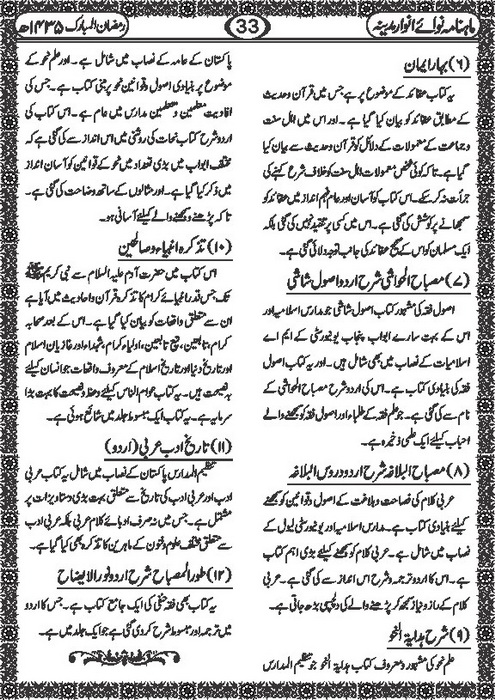 ماہنامہ نوائے انوار مدینہ
33
رمضان المبارک ۱۴۳۵ھ
(۶) بہار ایمان
یہ کتاب عقائد کے موضوع پر ہے جس میں قرآن وحدیث
کے مطابق عقائد کو بیان کیا گیا ہے۔ اور اس میں اہل سنت
وجماعت کے معمولات کے دلائل کو قرآن وحدیث سے بیان کیا
گیا ہے۔ تاکہ کوئی شخص معمولات اہل سنت کو خلاف شرع کہنے کی
جرأت نہ کر سکے۔ اس کتاب کو آسان اور عام فہم انداز میں عقائد کو
سمجھانے پر کوشش کی گئی ہے۔ اس میں کسی پر تنقید نہیں کی گئی بلکہ
ایک مسلمان کو اس کے صحیح عقائد کی جانب توجہ دلائی گئی ہے۔
(۷) مصباح الحواشی شرح اردو اصول شاشی
اصول فقہ کی مشہور کتاب اصول شاشی جو مدارس اسلامیہ اور
اس کے بہت سارے ابواب پنجاب یونیورسٹی کے ایم اے
اسلامیات کے نصاب میں بھی شامل ہیں۔ اور یہ کتاب اصول
فقہ کی بنیادی کتاب ہے۔ اس کی اردو شرح مصباح الحواشی کے
نام سے کی گئی ہے۔ جو علم فقہ کے طلباء اور اصول فقہ کو سمجھنے والے
احباب کیلئے ایک علمی ذخیرہ ہے۔
(۸) مصباح البلاغہ شرح اردو دروس البلاغہ
عربی کلام کی فصاحت وبلاغت کے اصول وقوانین کو سمجھنے
کیلئے بنیادی کتاب ہے۔ مدارس اسلامیہ اور یونیورسٹی لیول کے
نصاب میں شامل ہے۔ عربی کلام کو سمجھنے کیلئے بڑی اہم کتاب
ہے۔ اس کا اردو ترجمہ وشرح اس انداز سے کی گئی ہے۔ کہ عربی
کلام کے راز و نیاز سمجھ کر پڑھنے والے کی دلچسپی بڑھ جاتی ہے۔
(۹) شرح ہدایۃ النحو
علم نحو کی مشہور ومعروف کتاب ہدایۃ النحو جو تنظیم المدارس
پاکستان کے عامہ کے نصاب میں شامل ہے۔ اور علم نحو کے
موضوع پر بنیادی اصول وقوانین نحو پر مبنی کتاب ہے۔ جس کی
افادیت معلمین و متعلمین مدارس میں عام ہے۔ اس کتاب کی
اردو شرح کتاب نحات کی روشنی میں اس انداز سے کی گئی ہے کہ
مختلف ابواب میں بڑی تعداد میں نحو کے قوانین کو آسان انداز
میں ذکر کیا گیا ہے۔ اور مثالوں کے ساتھ وضاحت کی گئی ہے۔
تاکہ پڑھنے وسمجھنے والے کیلئے آسانی ہو۔
(۱۰) تذکرہ انبیاء و صالحین
اس کتاب میں حضرت آدم علیہ السلام سے نبی کریم ﷺ
تک جس قدر انبیائے کرام کا تذکرہ قرآن واحادیث میں آیا ہے
ان سے متعلق واقعات کو بیان کیا گیا ہے۔ اس کے بعد صحابہ
کرام، تابعین، تبع تابعین، اولیاء کرام، شہداء اور غازیان اسلام
اور تاریخ دنیا اور تاریخ اسلام کے معروف واقعات جو انسان کیلئے
نصیحت ہیں۔ یہ کتاب عوام الناس کیلئے وعظ ونصیحت کا بہت بڑا
سرمایہ ہے۔ یہ کتاب ایک مبسوط جلد میں شائع ہوئی ہے۔
(۱۱) تاریخ ادب عربی (اردو)
تنظیم المدارس پاکستان کے نصاب میں شامل یہ کتاب عربی
ادب اور عربی ادب کی تاریخ سے متعلق بہت بڑی دستاویزات پر
مشتمل ہے۔ جس میں نہ صرف ادبائے کلام عربی بلکہ عربی ادب
سے متعلق مختلف علوم وفنون کے ماہرین کا تذکرہ بھی کیا گیا ہے۔
(۱۲) طور المصباح شرح اردو نور الایضاح
یہ کتاب بھی فقہ حنفی کی ایک جامع کتاب ہے۔ جس کا اردو
میں ترجمہ اور مبسوط شرح کر دی گئی ہے جو ایک جلد میں ہے۔